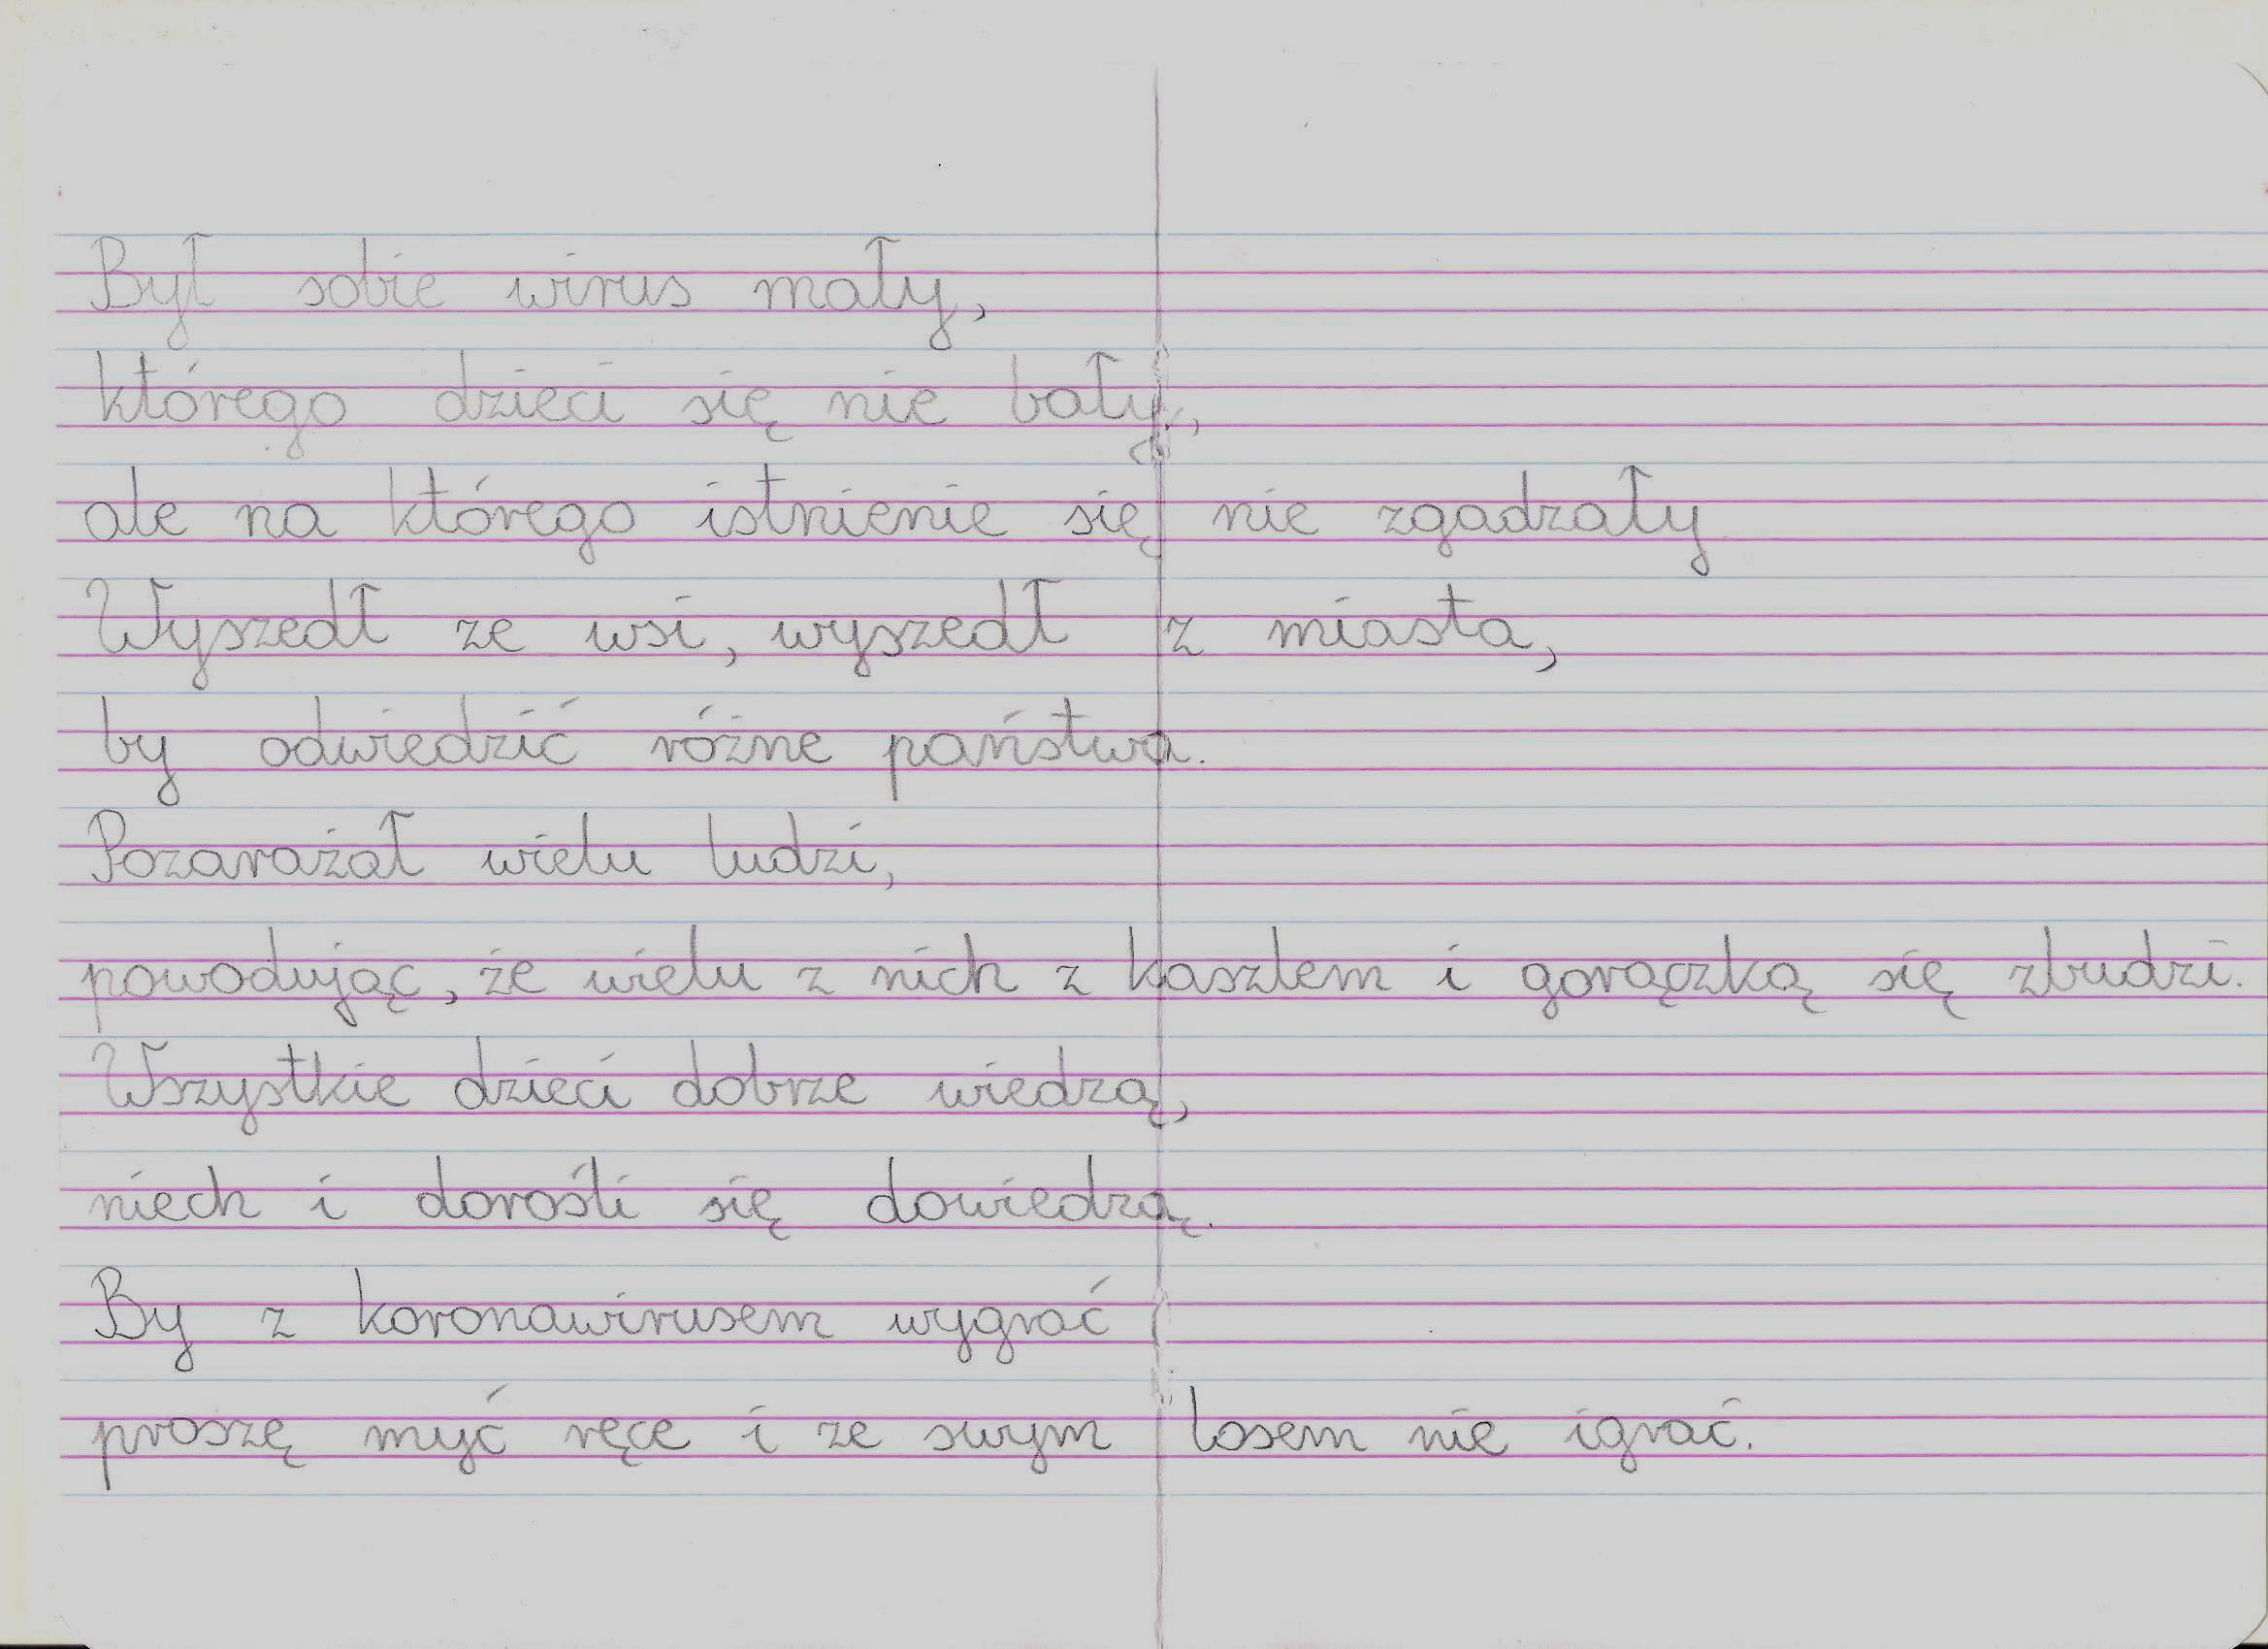 Był sobie wirus mały,
którego dzieci się nie bały,
ale na którego istnienie się nie zgadzały
Wyszedł ze wsi, wyszedł z miasta,
by odwiedzić różne państwa.
Pozarażał wielu ludzi,
powodując, że wielu z nich z kaszlem i gorączką się zbudzi.
Wszystkie dzieci dobrze wiedzą,
niech i dorośli się dowiedzą.
By z koronawirusem wygrać
proszę myć ręce i ze swym losem nie igrać.